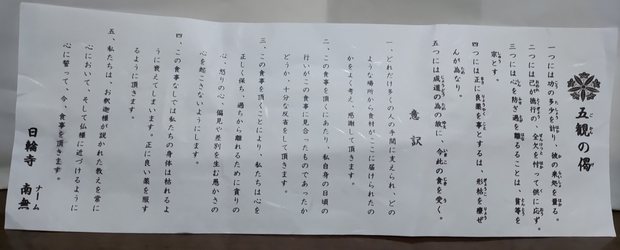 五観の偈
一つには功の多少を計り、彼の来処を量る。
二つには己が徳行の、全欠を忖って供に応ず。
三つには心を防ぎ過を離るることは、貪等を
宗とす。
四つには正に良薬を事とするは、形枯を療ぜ
んが為なり。
五つには成道の為の故に、今此の食を受く。
意訳
一、どれだけ多くの人の手間に支えられ、どの
ような場所から食材がここに届けられたの
かをよく考え、感謝して頂きます。
二、この食事を頂くにあたり、私自身の日頃の
行いがこの食事に見合ったものであったか
どうか、十分な反省をして頂きます。
三、この食事を頂くことにより、私たちは心を
正しく保ち、過ちから離れるために貪りの
心、怒りの心、偏見や差別を生む愚かさの
心を起こさないようにします。
四、この食事なしでは私たちの身体は枯れるよ
うに衰えてしまいます。正に良い薬を服す
るように頂きます。
五、私たちは、お釈迦様が説かれた教えを常に
心において、そして仏様に近づけるように
心に誓って、今、食事を頂きます。
ナーム
日輪寺 南無